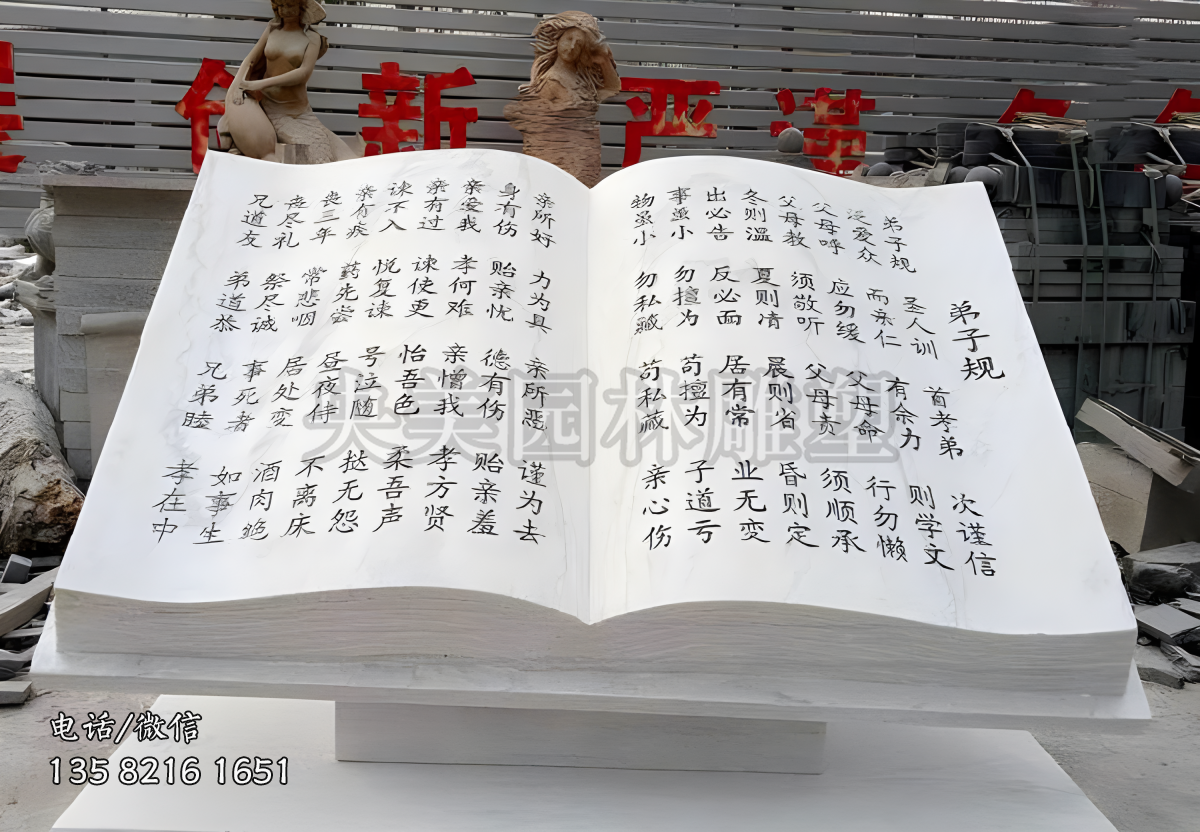 新 严谨
弟子规
弟子规 圣人训 首孝弟 次谨信
泛爱众 而亲仁 有余力 则学文
父母呼 应勿缓 父母命 行勿懒
父母教 须敬听 父母责 须顺承
冬则溫 夏则凊 晨则省 昏则定
出必告 反必面 居有常 业无变
事虽小 勿擅为 苟擅为 子道亏
物虽小 勿私藏 苟私藏 亲心伤
亲所好 力为具 亲所恶 谨为去
身有伤 贻亲忧 德有伤 贻亲羞
亲爱我 孝何难 亲憎我 孝方贤
亲有过 谏使更 怡吾色 柔吾声
谏不入 悦复谏 号泣随 挞无怨
亲有疾 药先尝 昼夜侍 不离床
丧三年 常悲咽 居处变 酒肉绝
丧尽礼 祭尽诚 事死者 如事生
兄道友 弟道恭 兄弟睦 孝在中
央美园林雕塑
电话/微信
135 8216 1651